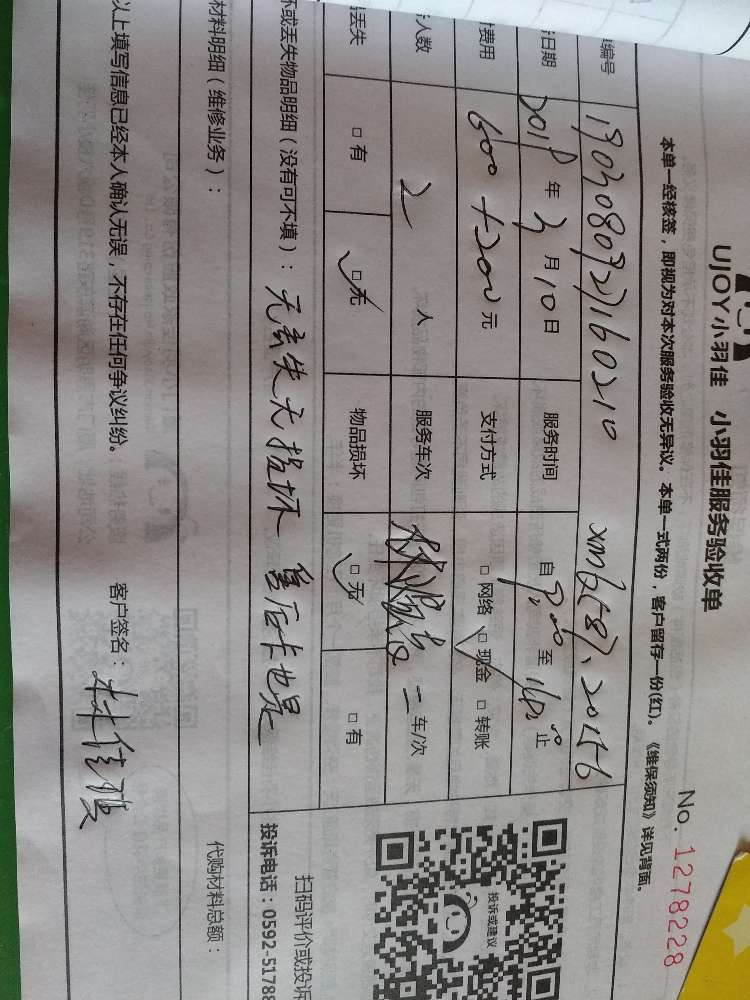 UJOY小羽佳 小羽佳服务验收单
No. 1278228
本单一经核签，即视为对本次服务验收无异议。本单一式两份，客户留存一份(红)。《维保须知》详见背面。
编号
日期 2019 年 3 月 10 日 服务时间 自 至 止
费用 600 +200 元 支付方式 □ 网络 □ 现金 □ 转账
人数 2 人 服务车次 二 车/次
丢失 □ 有 □ 无 物品损坏 □ 无 □ 有
坏或丢失物品明细（没有可不填）：无丢失无损坏
扫码评价或投诉
投诉或建议
投诉电话：0592-51788
材料明细（维修业务）：
代购材料总额：
以上填写信息已经本人确认无误，不存在任何争议纠纷。 客户签名：